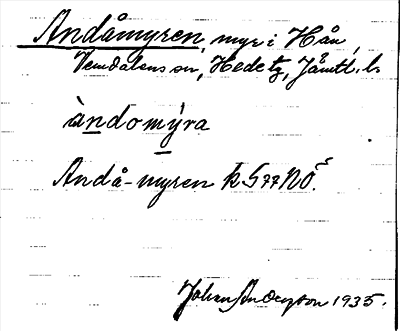 Andåmyren, myr i Hån,
Vemdalens sn, Hede tg, Jämtl. l.
àndomýra
Andå-myren k G 77 NÖ.
Johan Anderzson 1935.